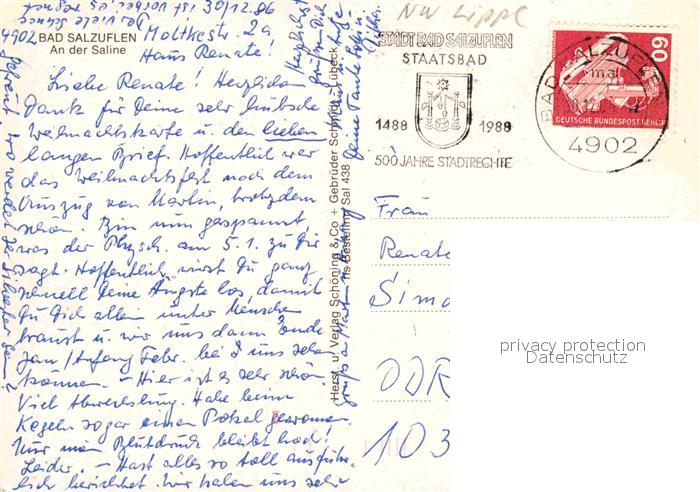 4902 BAD SALZUFLEN
An der Saline
Moltkestr. 2a
30/12.86
Haus Renate!
Liebe Renate! Herzlichen
Dank für Deine sehr hübsche
Weihnachtskarte u. den lieben
langen Brief. Hoffentlich war
das Weihnachtsfest nach dem
Auszug von Martin, trotzdem
schön. Bin nun gespannt,
was der Psych. am 5.1. zu Dir
sagt. Hoffentlich wirst Du ganz
schnell Deine Ängste los, damit
Du Dich allein unter Menschen
traust u. wir uns dann Ende
Jan/Anfang Febr. bei uns sehen
können. – Hier ist es sehr schön.
Viel Abwechslung. Habe beim
Kegeln sogar einen Pokal gewonnen.
Nur mein Blutdruck bleibt hoch!
Leider. – Hast alles so toll ausführ-
lich berichtet. Wir haben uns sehr
Herst. u. Verlag Schöning & Co + Gebrüder Schmidt, Lübeck
Bestellnr. Sal 438
NW Lippe
STADT BAD SALZUFLEN
STAATSBAD
1488 1988
500 JAHRE STADTRECHTE
BAD SALZUFLEN
4902
60
DEUTSCHE BUNDESPOST BERLIN
Frau
Renate
Simo
DDR
103
privacy protection
Datenschutz